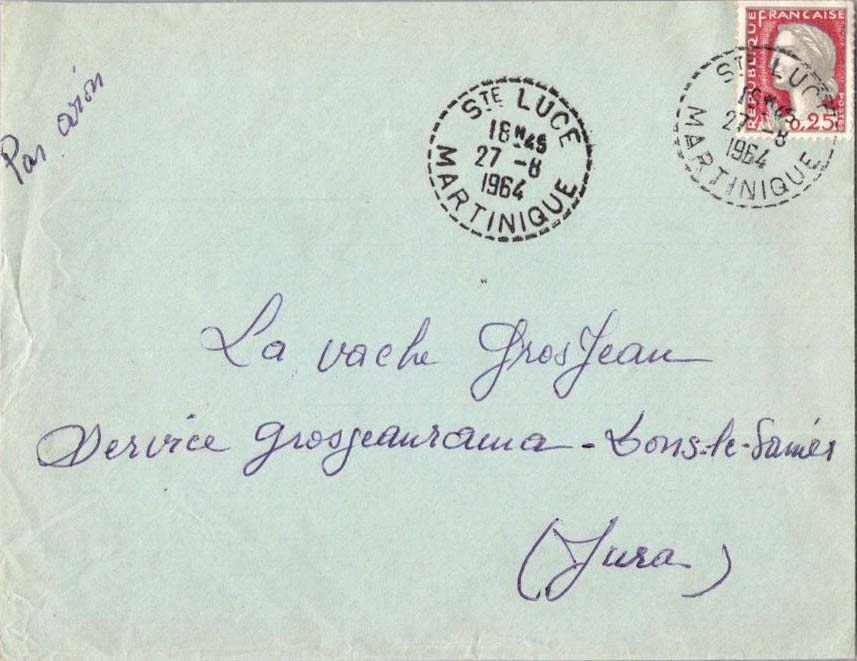 Par avion
RÉPUBLIQUE FRANCAISE
POSTES
0,25
STE LUCE
16H45
27 -8
1964
MARTINIQUE
STE LUCE
16H45
27 -8
1964
MARTINIQUE
La vache GrosJean
Service grosjeanrama - Lons-le-Saunier
(Jura)